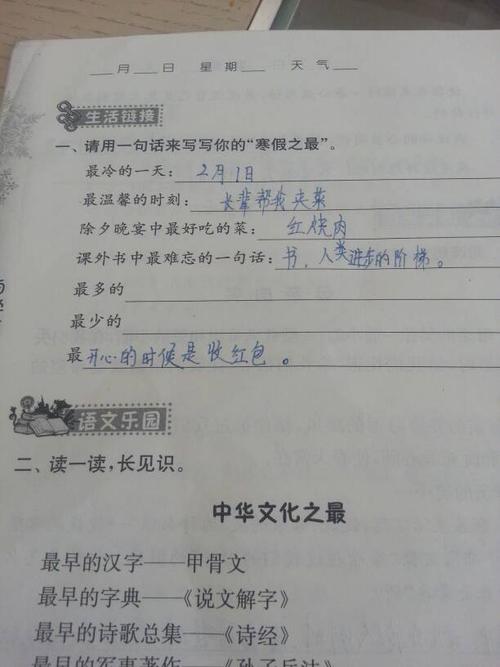 ____月____日 星期____天气____
生活链接
一、请用一句话来写写你的“寒假之最”。
最冷的一天：2月1日
最温馨的时刻：长辈帮我夹菜
除夕晚宴中最好吃的菜：红烧肉
课外书中最难忘的一句话：书，人类进步的阶梯。
最多的
最少的
最开心的时候是收红包。
语文乐园
二、读一读，长见识。
中华文化之最
最早的汉字——甲骨文
最早的字典——《说文解字》
最早的诗歌总集——《诗经》
最早的军事著作——《孙子兵法》